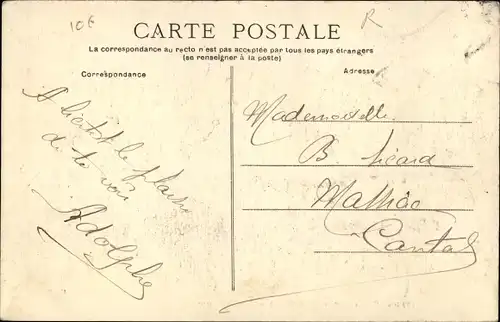 10€
R
CARTE POSTALE
La correspondance au recto n'est pas acceptée par tous les pays étrangers
(se renseigner à la poste)
Correspondance
Adresse
A bientot le plaisir
de te voir
Adolphe
Mademoiselle
B.
Cantal